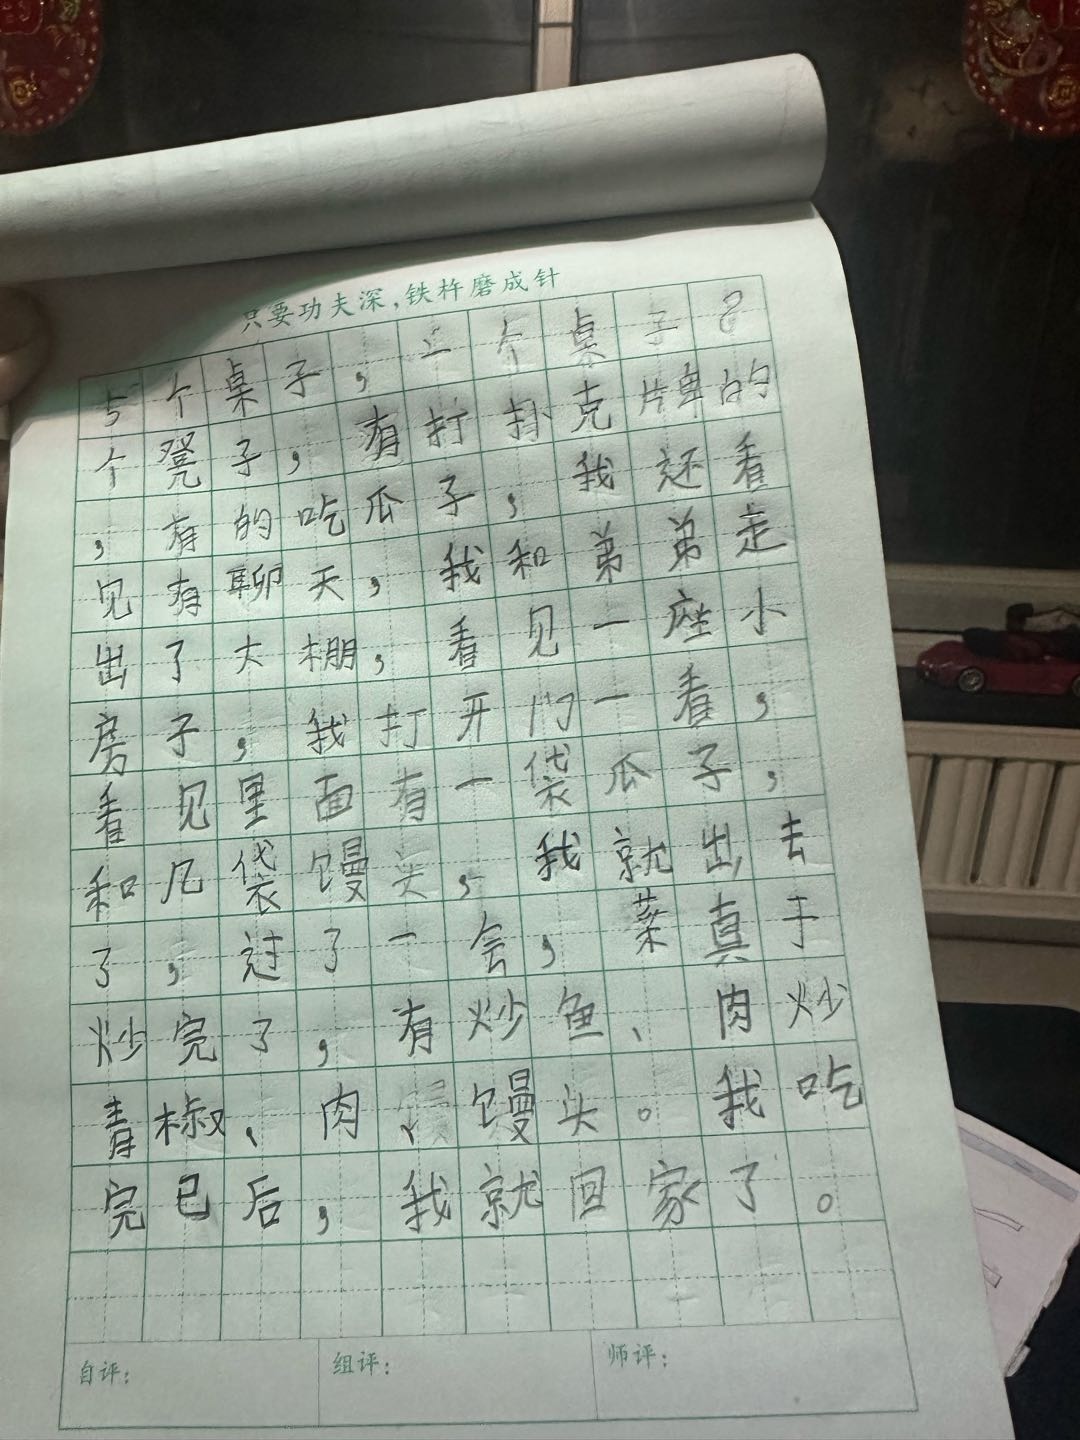 只要功夫深,铁杵磨成针
5个桌子,一个桌子8
个凳子,有打扑克牌的
,有的吃瓜子,我还看
见有聊天,我和弟弟走
出了大棚,看见一座小
房子,我打开门一看,
看见里面有一袋瓜子,
和几袋馒头,我就出去
了,过了一会,菜真于
炒完了,有炒鱼、肉炒
青椒、肉、馒头。我吃
完已后,我就回家了。
自评: 组评: 师评: